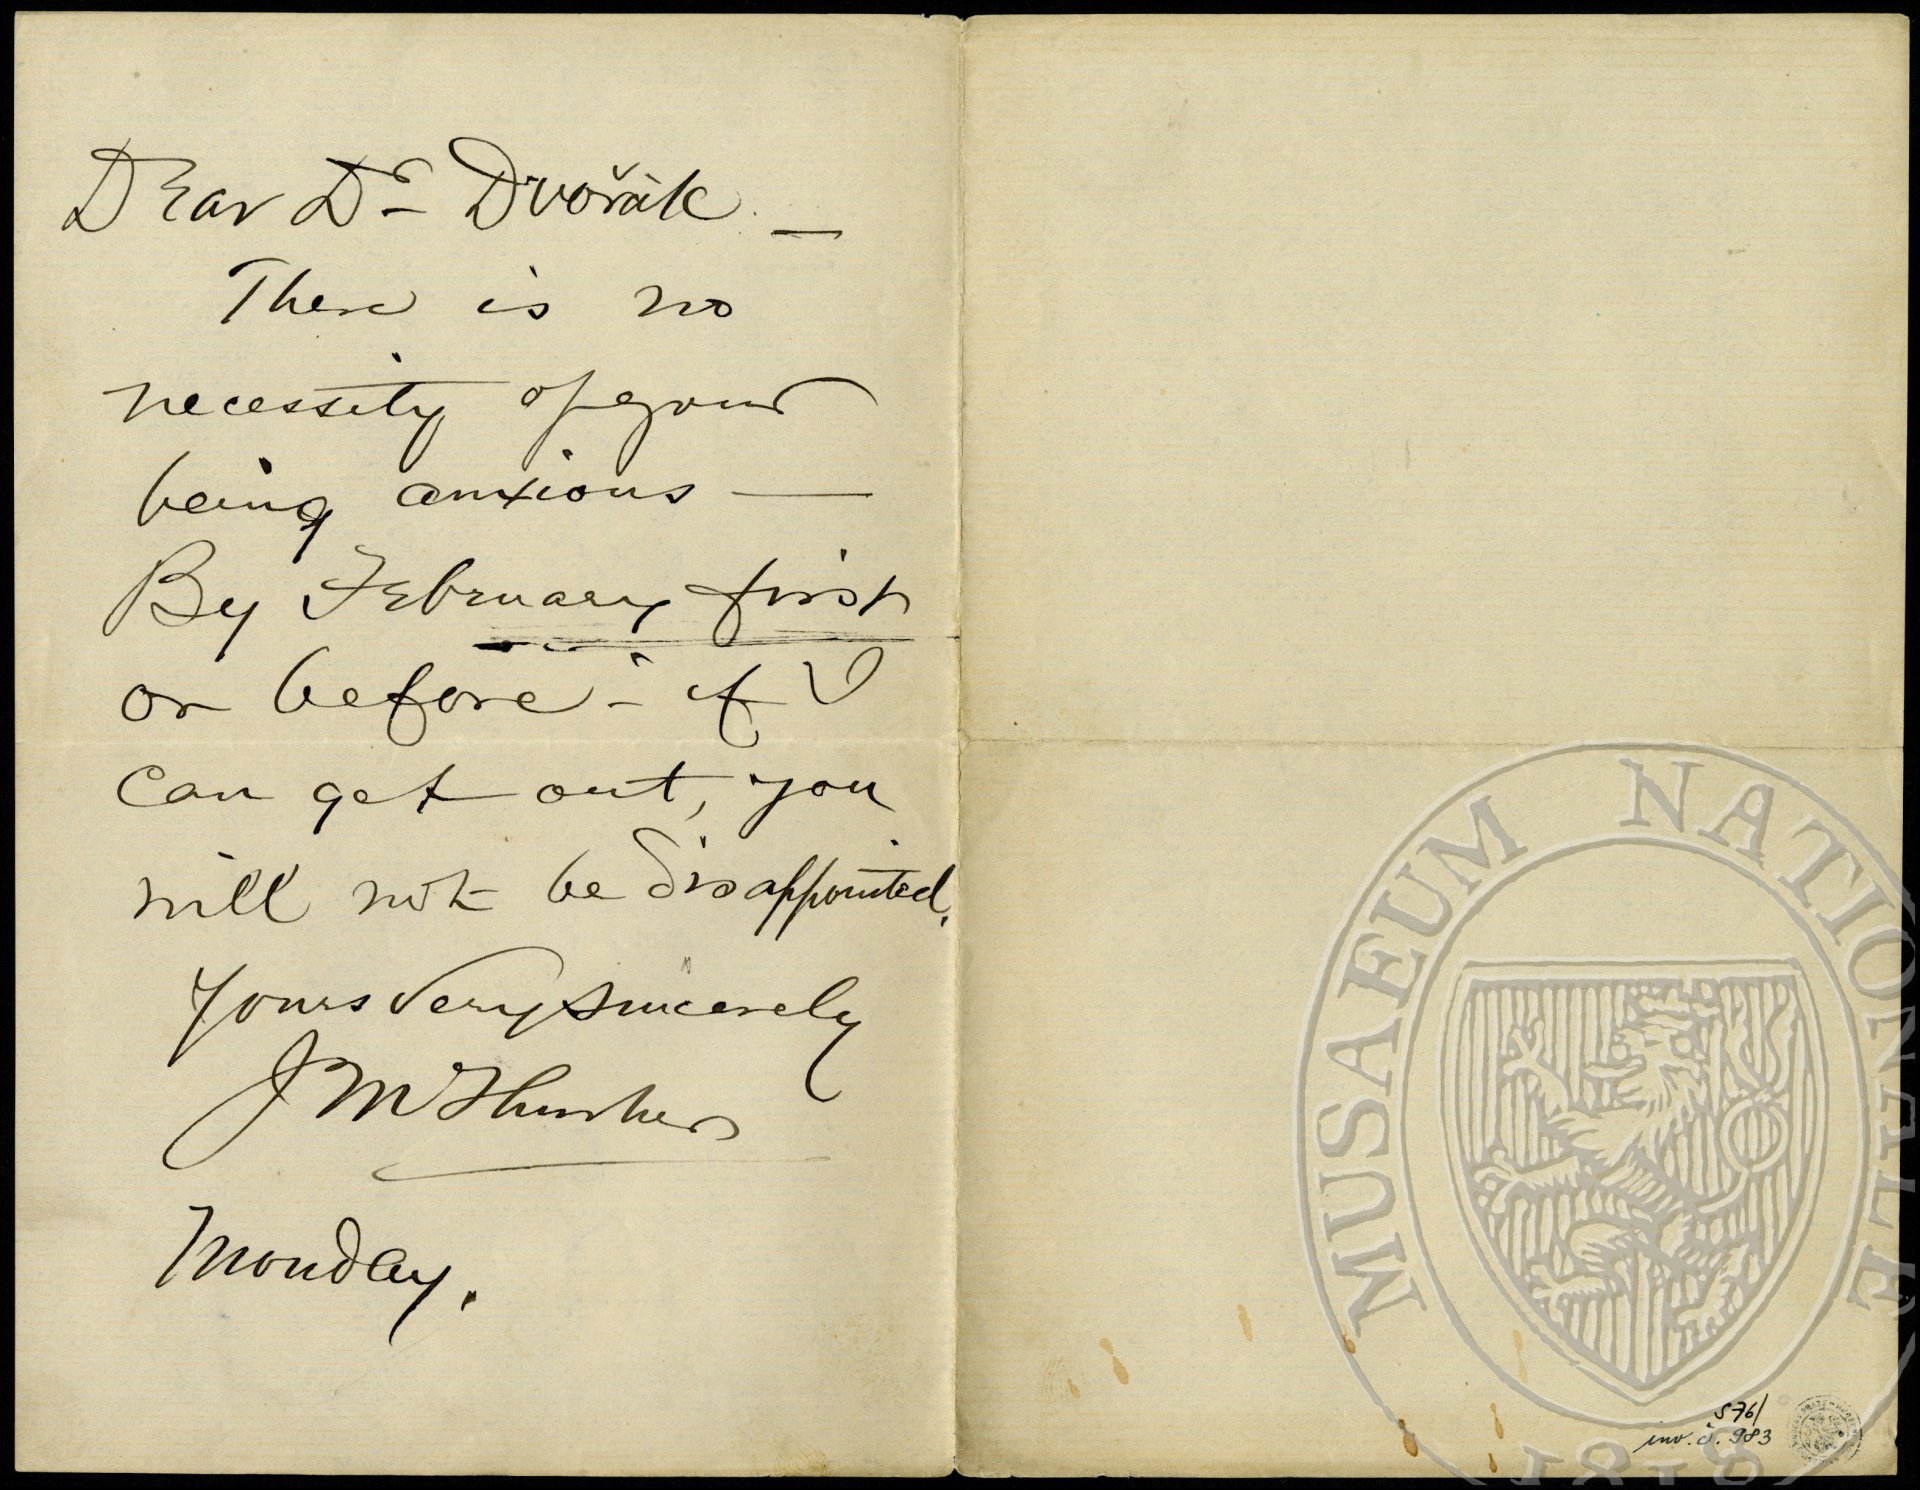 Dear Dr Dvořák —
There is no
necessity of your
being anxious —
By February first
or before – if I
can get out, you
will not be disappointed.
Yours very sincerely
J M Thurber
Monday.
MUSAEUM NATIONALE
1818
S 76/
inv. č. 983